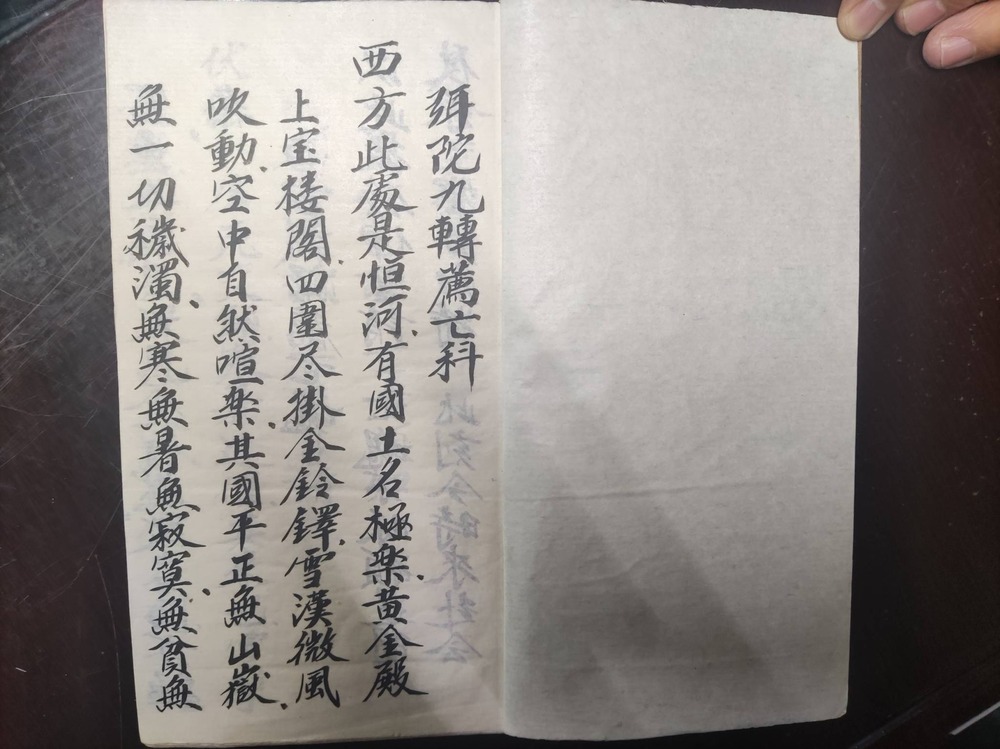 弭陀九轉薦亡科
西方此處是恒河、有國土名極楽、黄金殿
上宝楼閣、四圍尽掛金鈴鐸、雪漢微風
吹動、空中自然喧楽、其國平正無山嶽、
無一切穢濁、無寒無暑無寂寞、無貧無